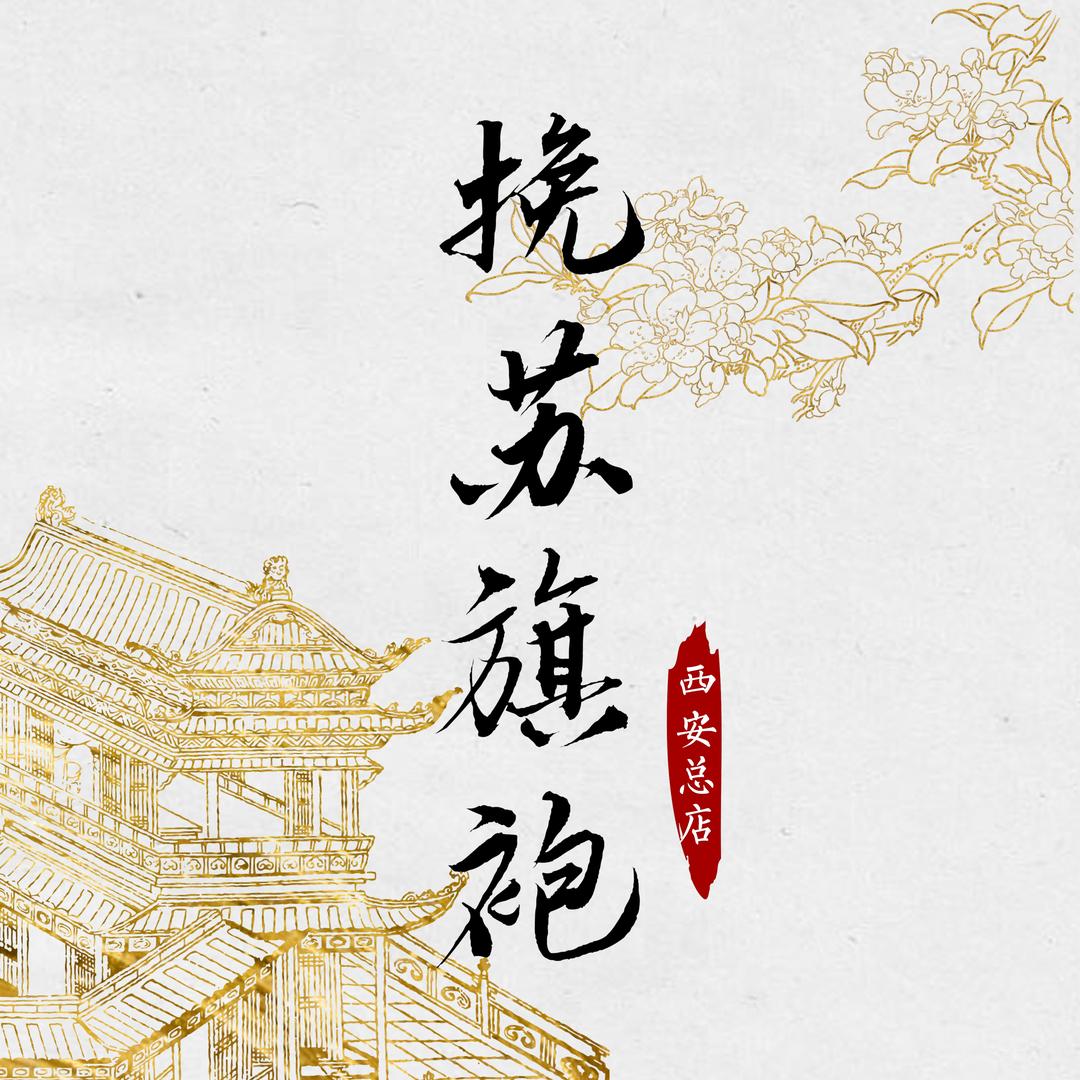 挽苏旗袍
西安总店